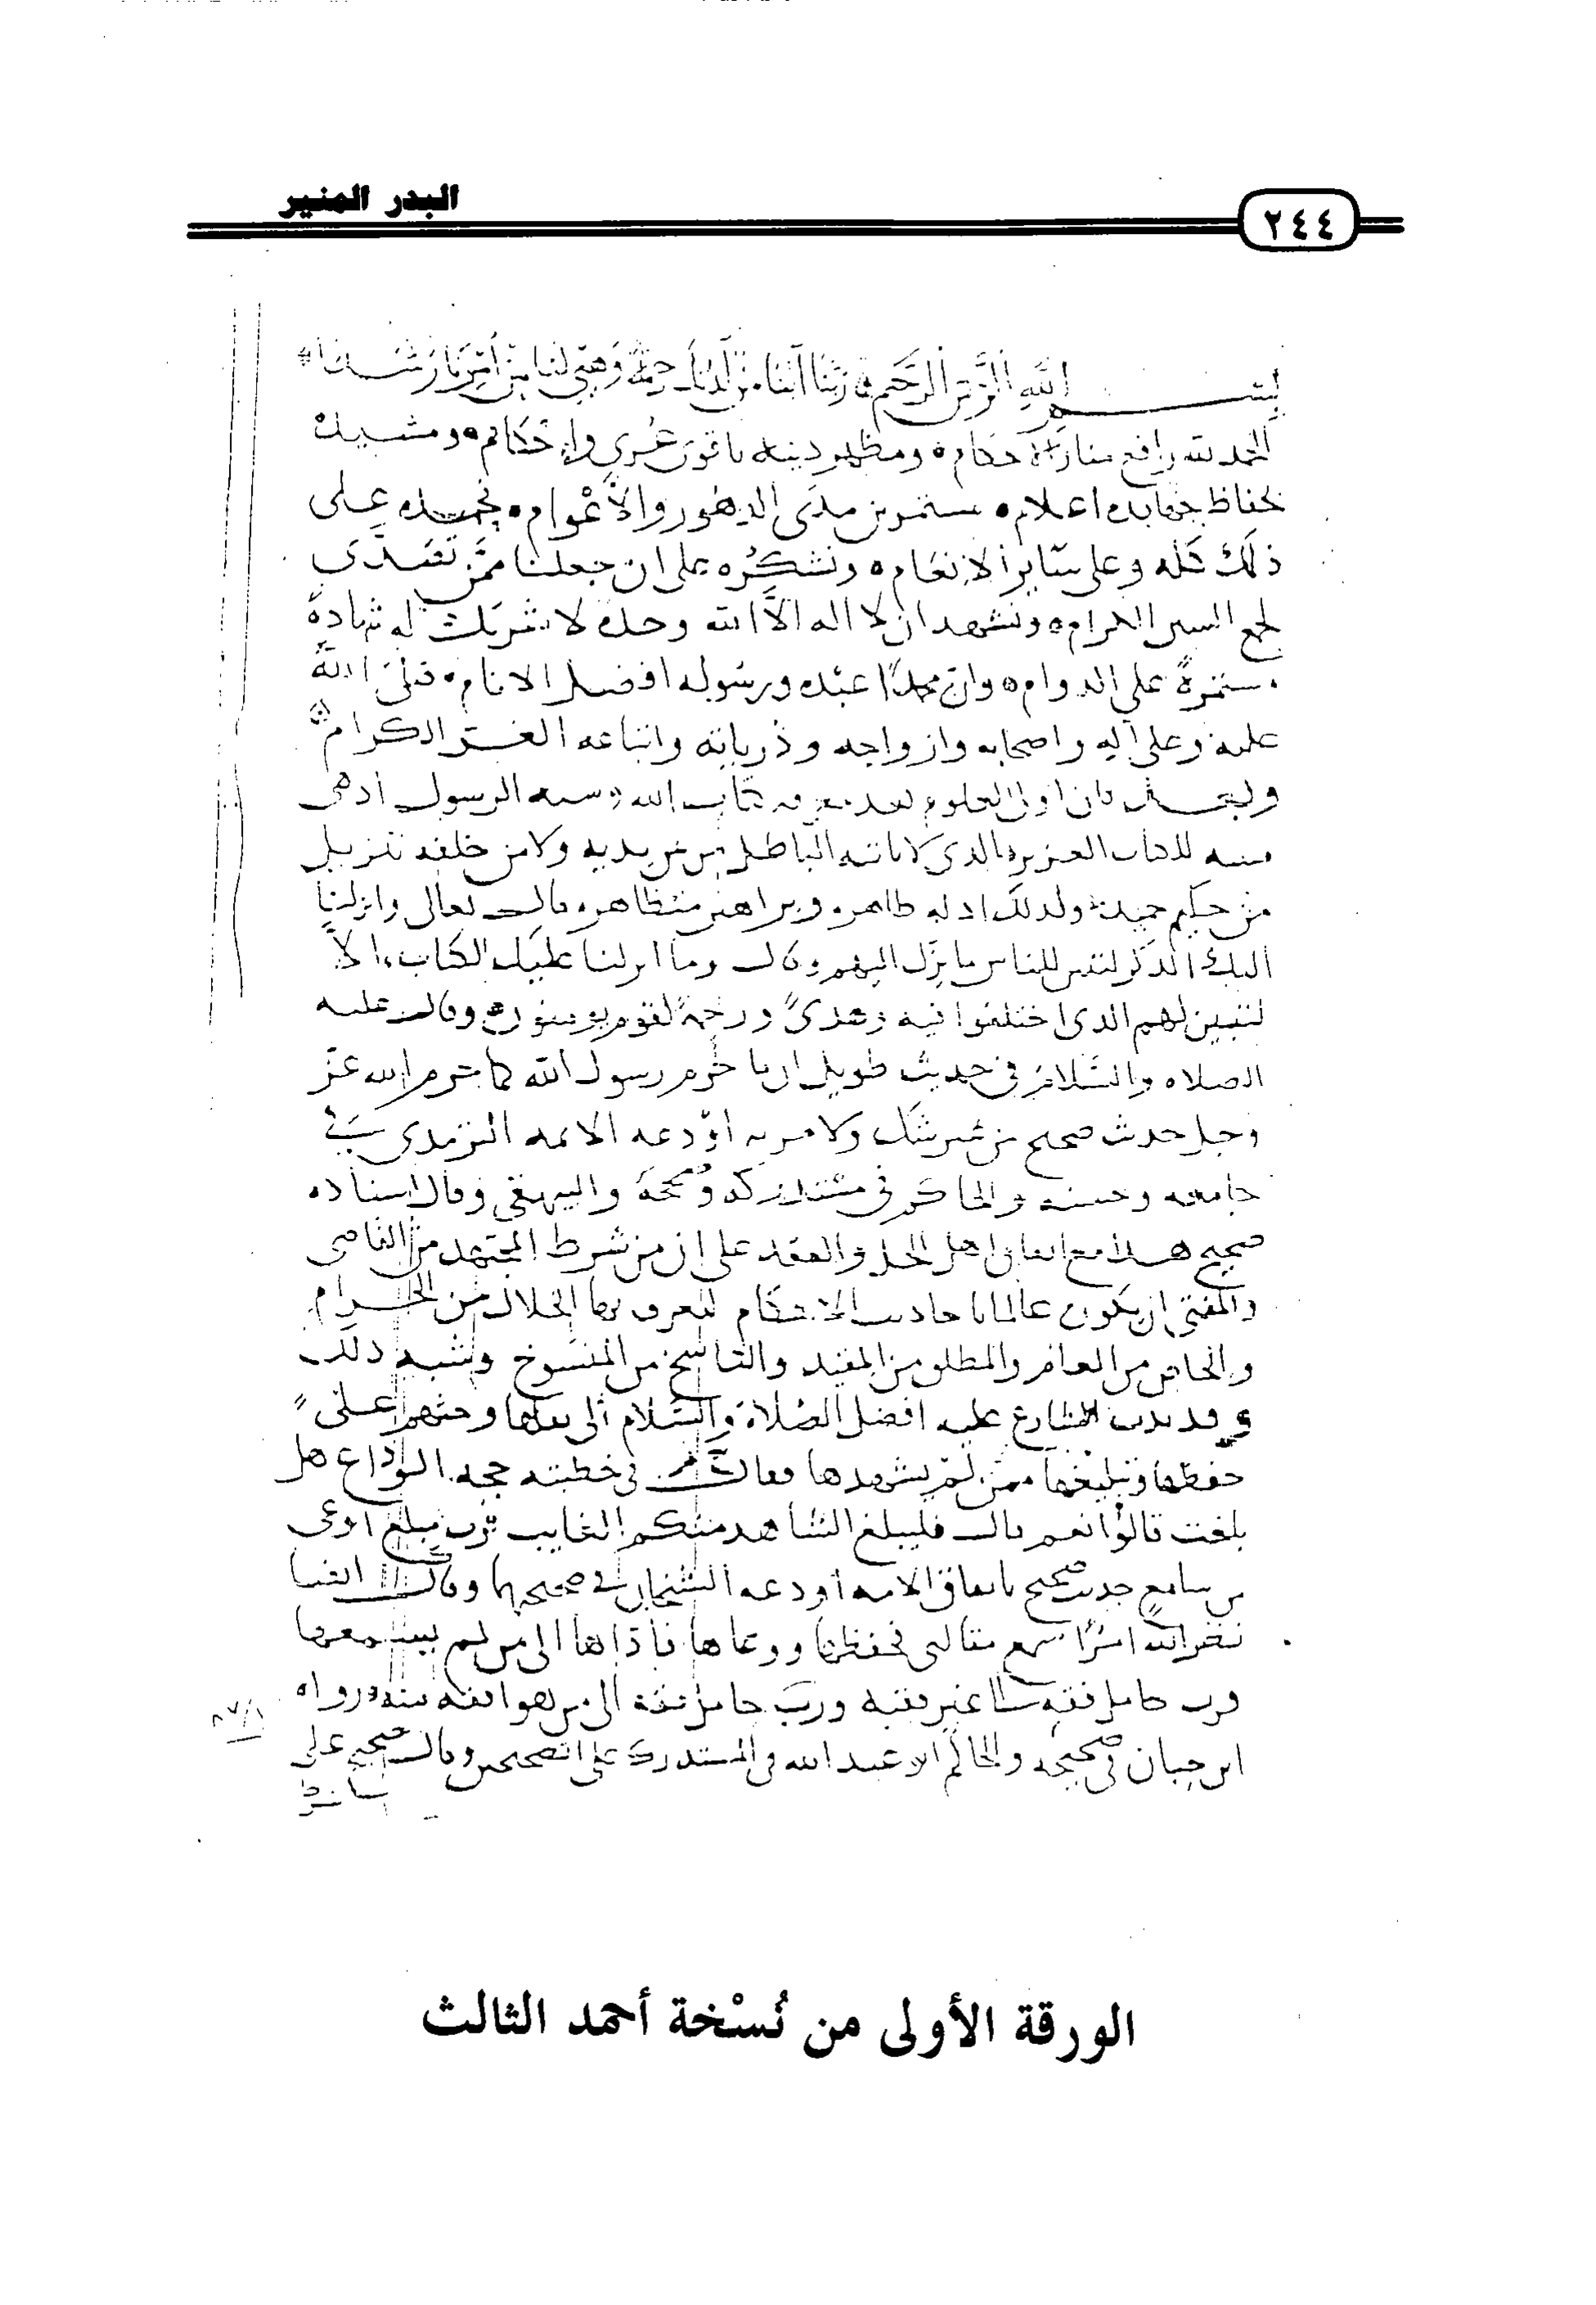 البدر المنير
٢٤٤
بسم الله الرحمن الرحيم ربنا آتنا من لدنك رحمة وهيئ لنا من أمرنا رشدا
الحمد لله رافع منار الاحكام ومظهر دينه باقوى عرى واحكام ومشيده
بحفاظ جهابذه اعلام مستمرين مدى الدهور والأعوام نحمده على
ذلك كله وعلى سائر الانعام ونشكره على ان جعلنا ممن تصدى
لجمع السنن الكرام ونشهد ان لا اله الا الله وحده لا شريك له شهادة
مستمرة على الدوام وان محمدا عبده ورسوله افضل الانام صلى الله
عليه وعلى آله واصحابه وازواجه وذرياته واتباعه الغر الكرام
وبعد فان اولى العلوم بعد معرفه كتاب الله سنه الرسول اذ هي
مبينه للكتاب العزيز الذي لا ياتيه الباطل من بين يديه ولا من خلفه تنزيل
من حكيم حميد ولذلك ادله ظاهره وبراهين متظاهره قال تعالى وانزلنا
اليك الذكر لتبين للناس ما نزل اليهم وقال وما انزلنا عليك الكتاب الا
لتبين لهم الذي اختلفوا فيه وهدىً ورحمةً لقوم يومنون وقال عليه
الصلاه والسلام في حديث طويل ان ما حرم رسول الله كما حرم الله عز
وجل حديث صحيح من غير شك ولا مريه اودعه الائمه الترمذي في
جامعه وحسنه والحاكم في مستدركه وصححه والبيهقي وقال اسناده
صحيح هذا مع اتفاق اهل الحل والعقد على ان من شرط المجتهد من القاضي
والمفتي ان يكون عالما باحاديث الاحكام ليعرف بها الحلال من الحرام
والخاص من العام والمطلق من المقيد والناسخ من المنسوخ وشبه ذلك
وقد ندب الشارع عليه افضل الصلاة والسلام الى نقلها وحثهم على
حفظها وتبليغها من لم يشهدها فقال في خطبته حجه الوداع هل
بلغت قالوا نعم قال فليبلغ الشاهد منكم الغايب فرب مبلغ اوعى
من سامع حديث صحيح باتفاق الامه اودعه الشيخان في صحيحيهما وقال ايضا
نضر الله امرًا سمع مقالتي فحفظها ووعاها فأداها الى من لم يسمعها
فرب حامل فقه غير فقيه ورب حامل فقه الى من هو افقه منه رواه
ابن حبان في صحيحه والحاكم ابو عبد الله في المستدرك على الصحيحين وقال صحيح على
الورقة الأولى من نُسْخة أحمد الثالث